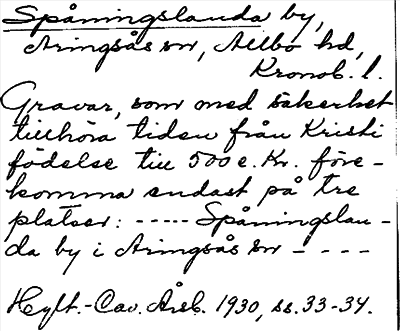 Spåningslanda by,
Aringsås sn, Allbo hd,
Kronob. l.
Gravar, som med säkerhet
tillhöra tiden från Kristi
födelse till 500 e. Kr. före-
komma endast på tre
platser: ----- Spåningslan-
da by i Aringsås sn - - - -
Hylt.-Cav. Årsb. 1930, ss. 33-34.